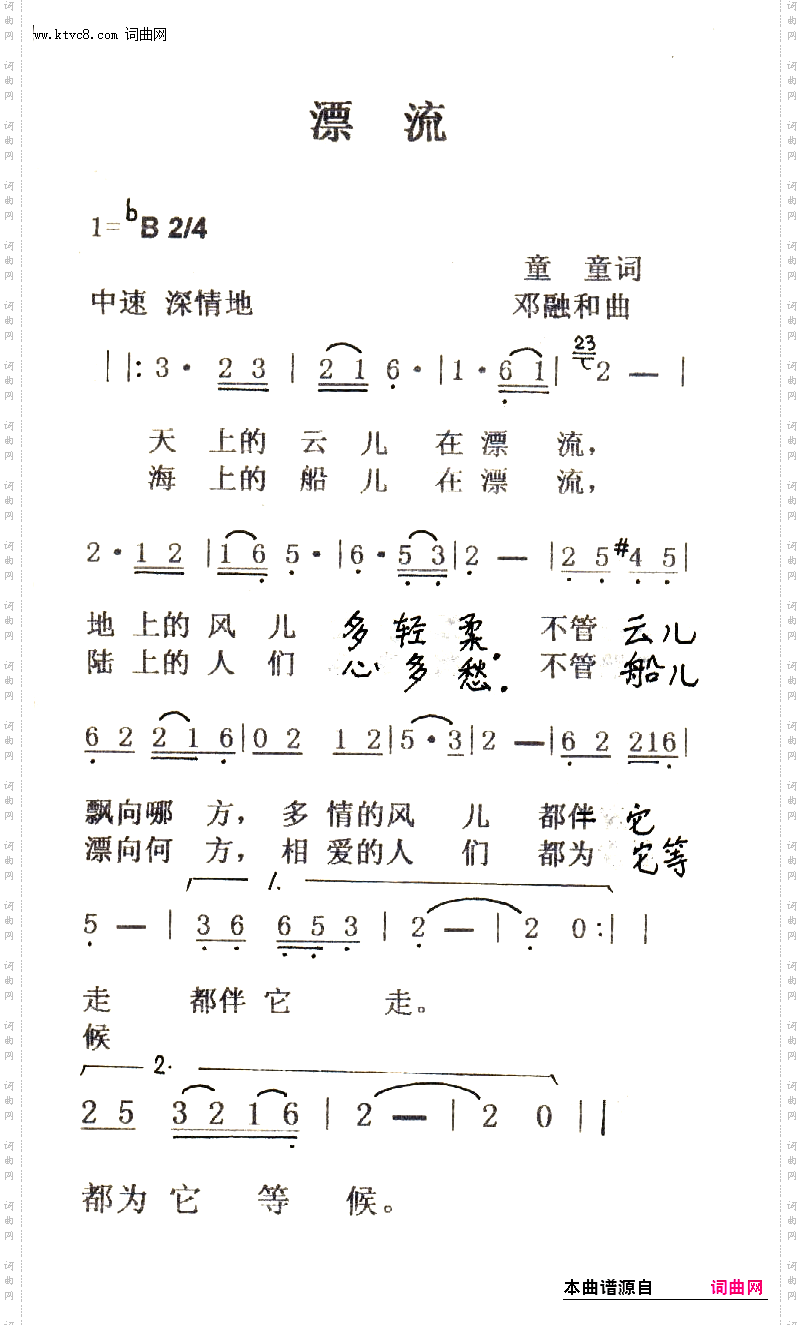 ww.ktvc8.com 词曲网
漂 流
1=bB 2/4
童 童词
中速 深情地 邓融和曲
||:3· 2 3 | 2 1 6· | 1· 6 1 | 23 2 — |
天 上的 云 儿 在 漂 流,
海 上的 船 儿 在 漂 流,
2· 1 2 | 1 6 5· | 6· 5 3 | 2 — | 2 5 #4 5 |
地 上的 风 儿 多 轻 柔. 不管 云儿
陆 上的 人 们 心 多 愁. 不管 船儿
6 2 2 1 6 | 0 2 1 2 | 5· 3 | 2 — | 6 2 216 |
飘向哪 方, 多 情的风 儿 都伴 它
漂向何 方, 相 爱的人 们 都为 它等
1.
5 — | 3 6 6 5 3 | 2 — | 2 0 :| |
走 都伴 它 走。
候
2.
2 5 3 2 1 6 | 2 — | 2 0 ||
都为 它 等 候。
本曲谱源自 词曲网